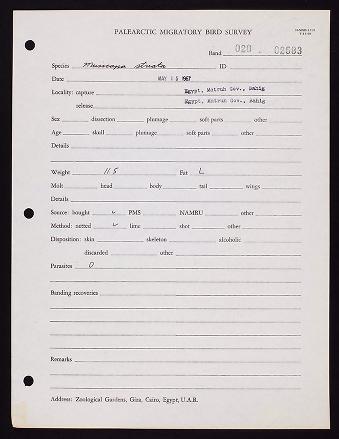 PALEARCTIC MIGRATORY BIRD SURVEY
Band 020 - 02683
Species Muscicapa striata ID
Date MAY 15 1967
Locality: capture Egypt, Matruh Gov., Bahig
release Egypt, Matruh Gov., Bahig
Sex dissection plumage soft parts other
Age skull plumage soft parts other
Details
Weight 11.5 Fat L
Molt head body tail wings
Details
Source: bought ✓ PMS NAMRU other
Method: netted ✓ lime shot other
Disposition: skin skeleton alcoholic
discarded other
Parasites 0
Banding recoveries
Remarks
Address: Zoological Gardens, Giza, Cairo, Egypt, U.A.R.